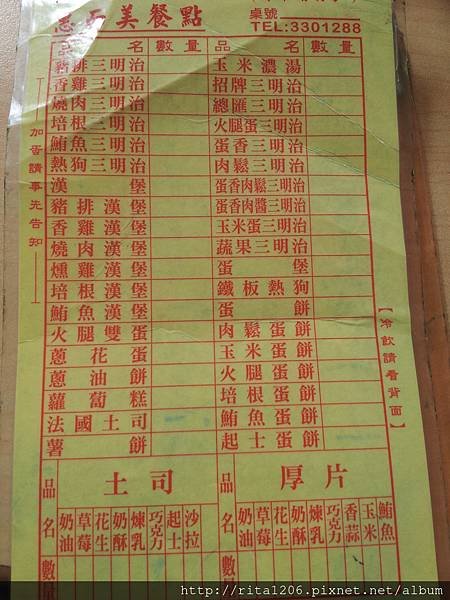 美餐點
桌號
TEL:3301288
品名 數量 品名 數量
豬排三明治 玉米濃湯
香雞三明治 招牌三明治
燒肉三明治 總匯三明治
培根三明治 火腿蛋三明治
鮪魚三明治 蛋香三明治
熱狗三明治 肉鬆三明治
漢堡 蛋香肉鬆三明治
豬排漢堡 蛋香肉醬三明治
香雞漢堡 玉米蛋三明治
燒肉漢堡 蔬果三明治
燻雞漢堡 蛋堡
培根漢堡 鐵板熱狗
鮪魚漢堡 蛋餅
火腿雙蛋 肉鬆蛋餅
蔥花蛋 玉米蛋餅
蔥油餅 火腿蛋餅
蘿蔔糕 培根蛋餅
法國土司 鮪魚蛋餅
薯餅 起士蛋餅
加香請事先告知
【冷飲請看背面】
土司 厚片
品名 奶油 草莓 花生 奶酥 煉乳 巧克力 起士 沙拉
品名 奶油 草莓 花生 奶酥 煉乳 巧克力 香蒜 玉米 鮪魚
數量 數量
http://rita1206.pixnet.net/album